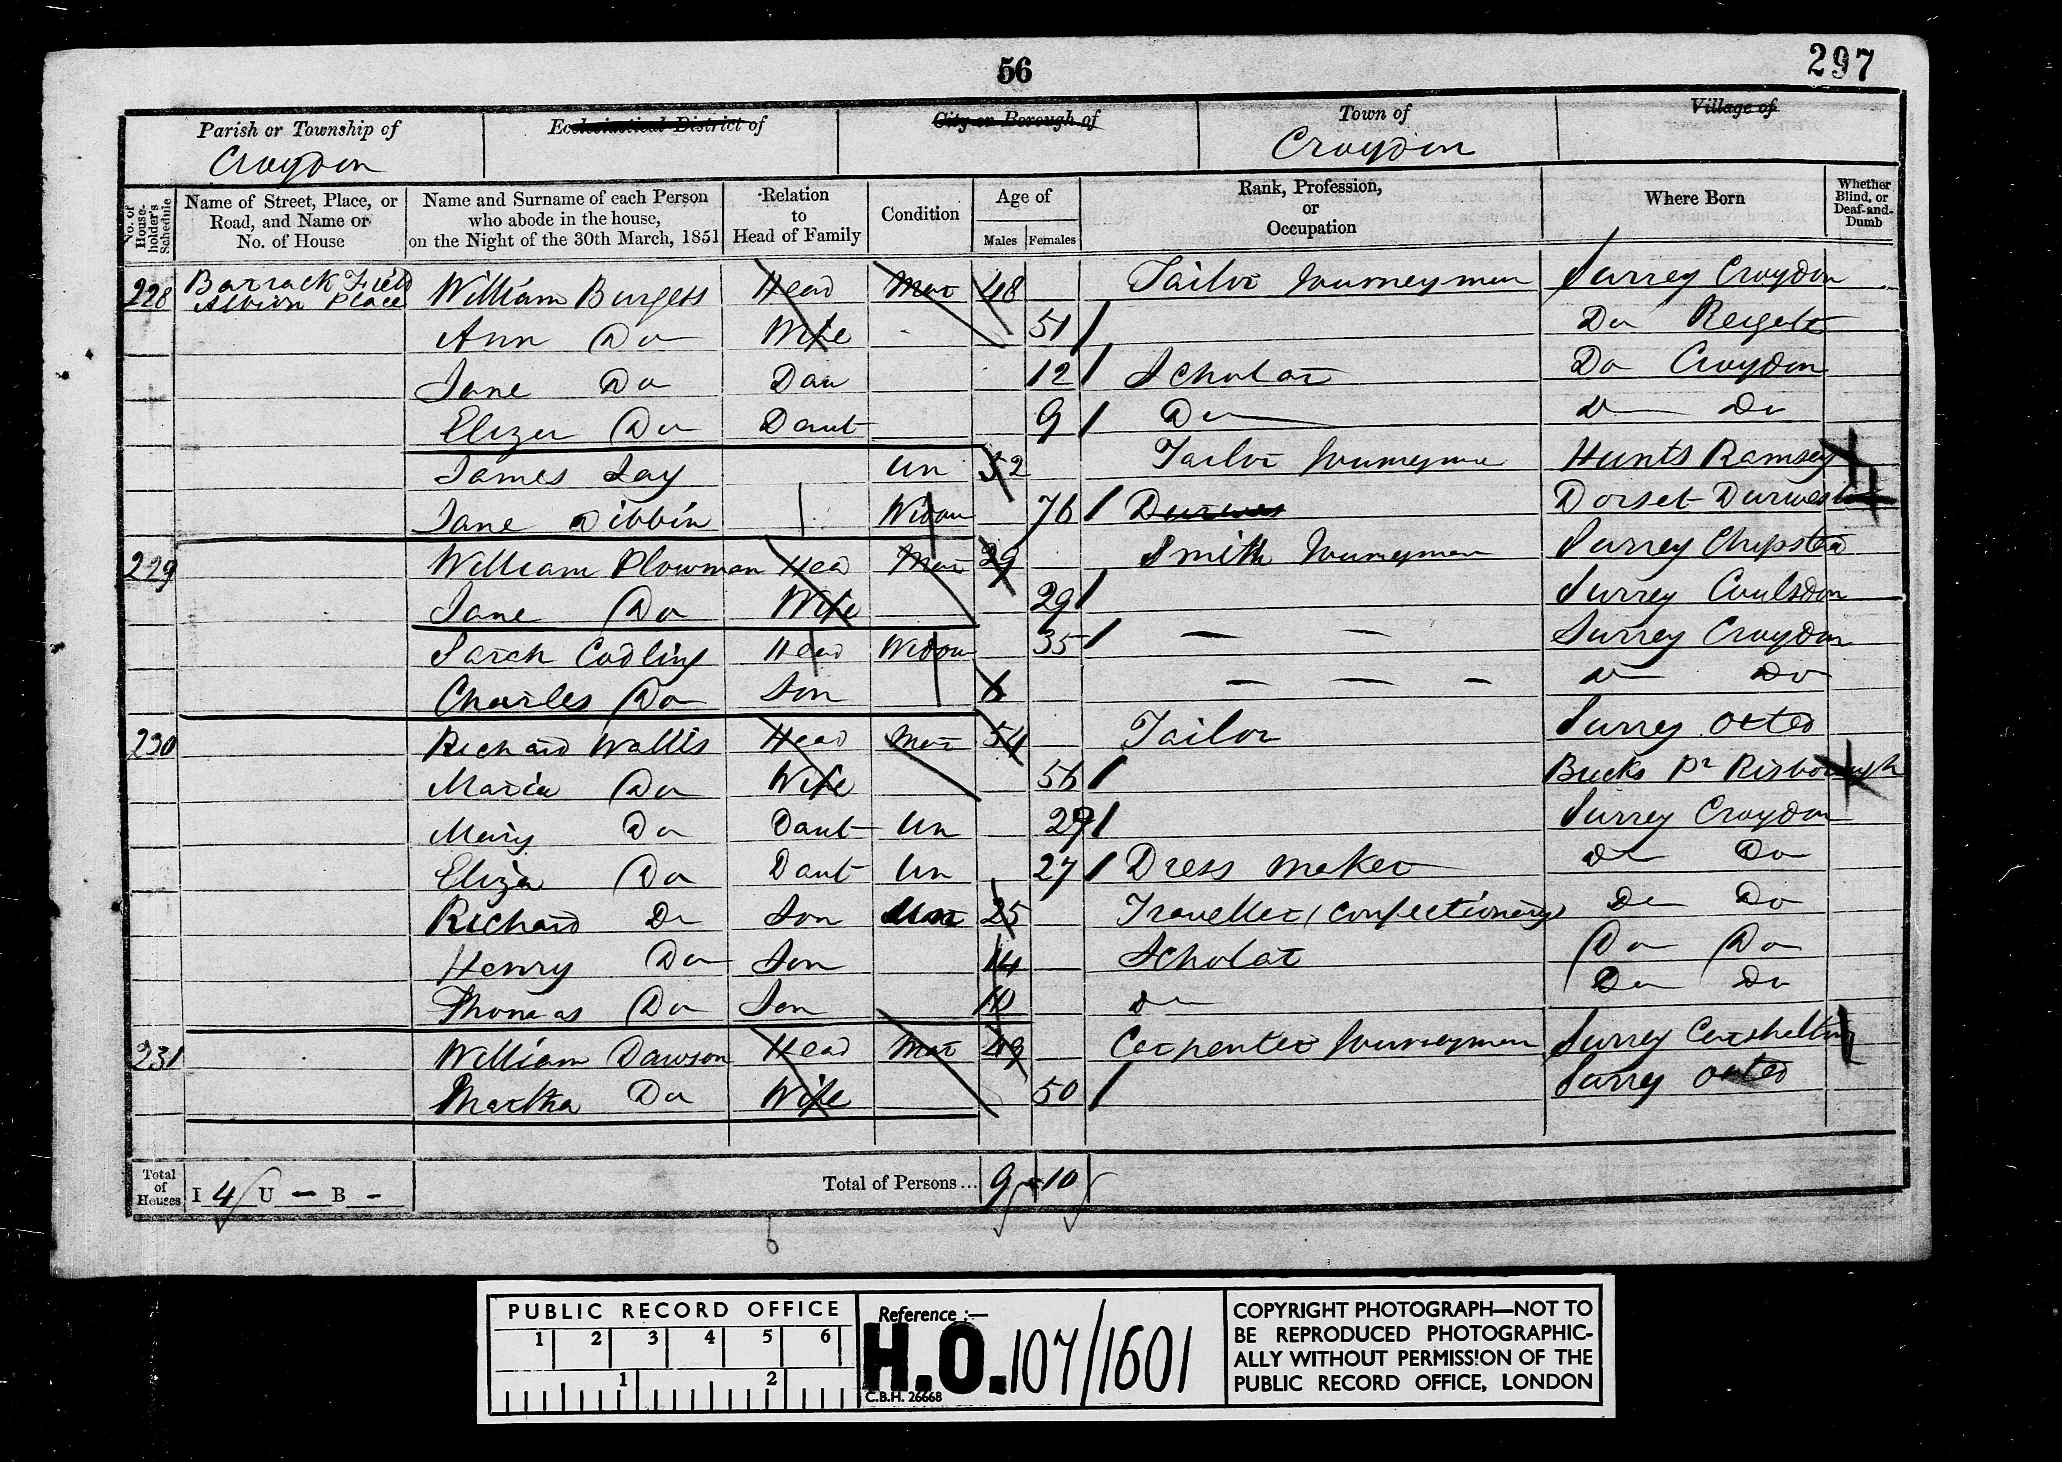 56
297
Parish or Township of
Croydon
Ecclesiastical District of
City or Borough of
Town of
Croydon
Village of
No. of House-holder's Schedule
Name of Street, Place, or Road, and Name or No. of House
Name and Surname of each Person who abode in the house, on the Night of the 30th March, 1851
Relation to Head of Family
Condition
Age of
Males Females
Rank, Profession, or Occupation
Where Born
Whether Blind, or Deaf-and-Dumb
228 Barrack Field Albion Place William Burgess Head Mar 48 Tailor Journeyman Surrey Croydon
Ann Do Wife 51 Do Reigate
Jane Do Dau 12 Scholar Do Croydon
Eliza Do Daut 9 Do Do Do
James Jay Un 52 Tailor Journeyman Hunts Ramsey
Jane Dibbin Widow 76 Dorset
229 William Plowman Head Mar 29 Smith Journeyman Surrey Chipstead
Jane Do Wife 29 Surrey Coulsdon
Sarah Codling Head Widow 35 Surrey Croydon
Charles Do Son 6 Do Do
230 Richard Wallis Head Mar 54 Tailor Surrey Oxted
Maria Do Wife 56 Bucks Pr Risborough
Mary Do Daut Un 29 Surrey Croydon
Eliza Do Daut Un 27 Dress Maker Do Do
Richard Do Son Un 25 Traveller (Confectionery) Do Do
Henry Do Son 14 Scholar Do Do
Thomas Do Son 10 Do Do Do
231 William Dawson Head Mar 49 Carpenter Journeyman Surrey Carshalton
Martha Do Wife 50 Surrey Oxted
Total of Houses I 4 U - B -
Total of Persons... 9 10
6
PUBLIC RECORD OFFICE
1 2 3 4 5 6
1 2
Reference :-
H.O. 107/1601
C.B.H. 26668
COPYRIGHT PHOTOGRAPH—NOT TO
BE REPRODUCED PHOTOGRAPHIC-
ALLY WITHOUT PERMISSION OF THE
PUBLIC RECORD OFFICE, LONDON